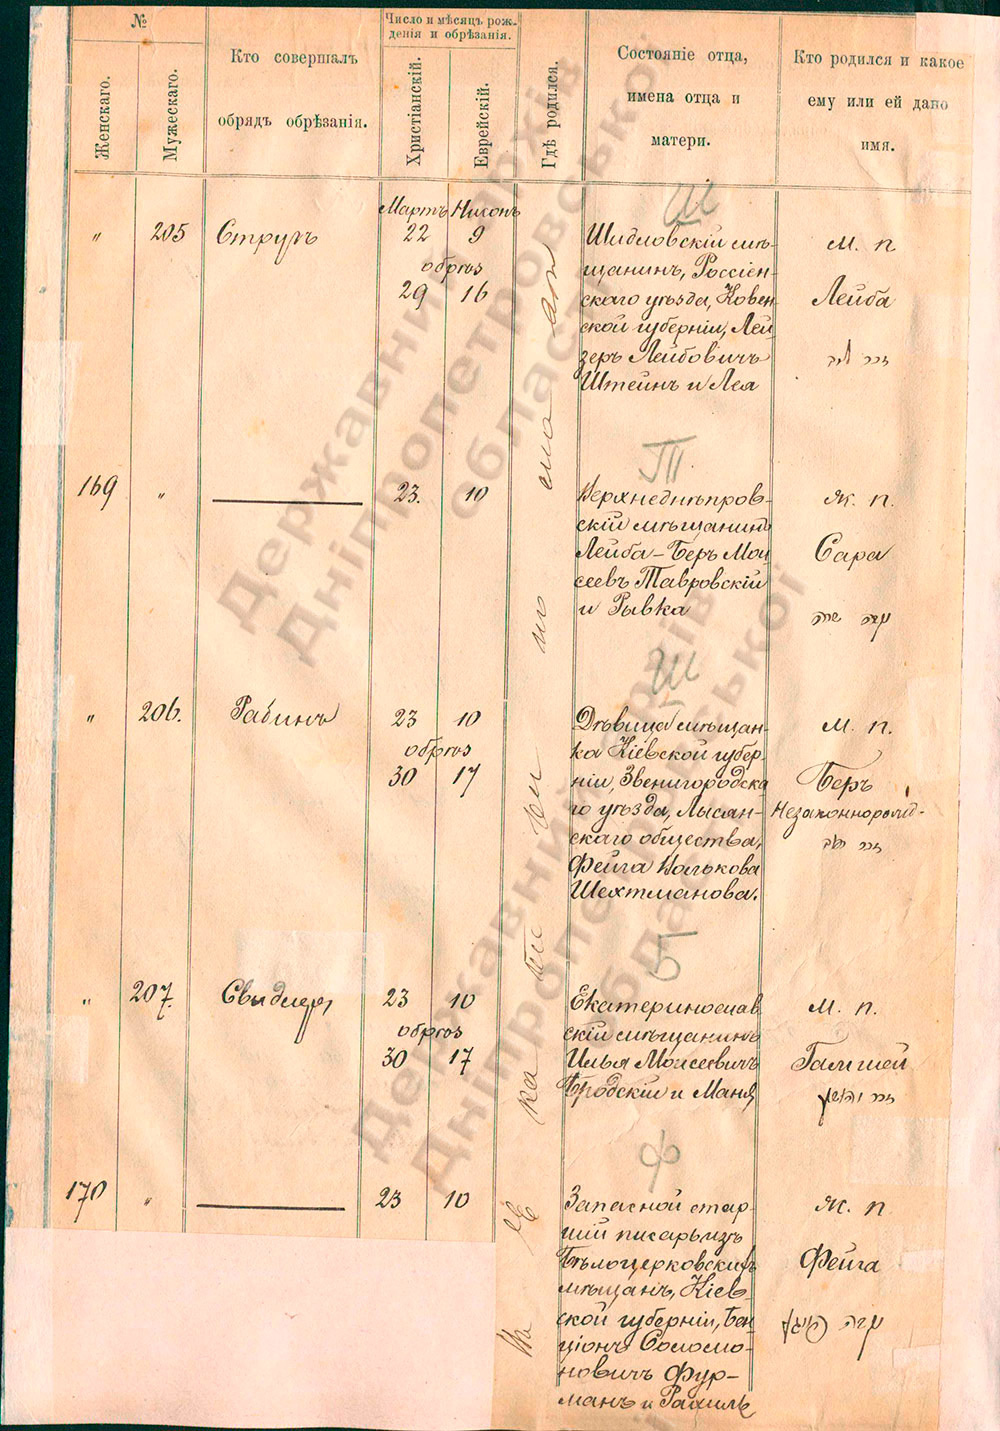 №
Женскаго.
Мужескаго.
Кто совершалъ
обрядъ обрѣзанія.
Число и мѣсяцъ рож-
денія и обрѣзанія.
Христіанскій.
Еврейскій.
Гдѣ родился.
Состояніе отца,
имена отца и
матери.
Кто родился и какое
ему или ей дано
имя.
Мартъ Нисонъ
Ш
„ 205 Струль 22 9
обрѣз
29 16
Шидловскій мѣ-
щанинъ, Россіен-
скаго уѣзда, Ковен
ской губерніи, Лей
зеръ Лейбовичъ
Штейнъ и Лея
м. п
Лейба
זכר
Т
169 „ 23. 10
Верхнеднѣпров-
скій мѣщанинъ
Лейба-Беръ Мои
сеевъ Тавровскій
и Рывка
ж. п.
Сара
שרה
Ш
„ 206. Рабинъ 23 10
обрѣз
30 17
Дѣвица мѣщан-
ка Кіевской губер-
ніи, Звенигородска
го уѣзда, Лысян-
скаго общества,
Фейга
Шехтманова.
м. п.
Беръ
Незаконнорожд-
זכר
Б
„ 207. 23 10
обрѣз
30 17
Екатеринослав
скій мѣщанинъ
Илья Моисеевичъ
Бродскій и Маня
м. п.
זכר
Ф
170 „ 23 10
Запасной стар
шій писарь изъ
Бѣлоцерковскихъ
мѣщанъ, Кіев-
ской губерніи, Бен
ціонъ Соломо-
новичъ Фур-
манъ и Рахиль
ж. п
Фейга
Державний архів
Дніпропетровської
області
Державний архів
Дніпропетровської
області